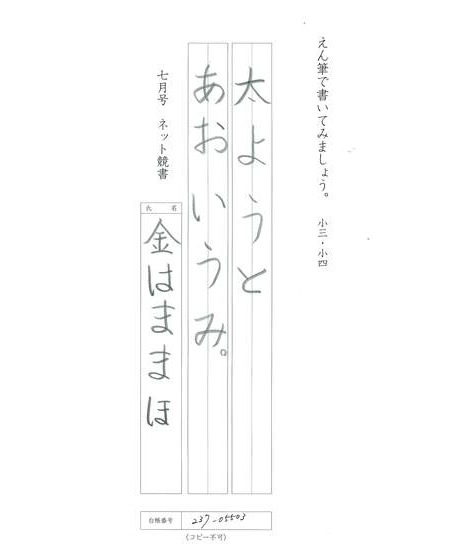 えん筆で書いてみましょう。 小三・小四
太ようと
あおいうみ。
七月号 ネット競書
氏名
金はままほ
台帳番号 237-05503
(コピー不可)